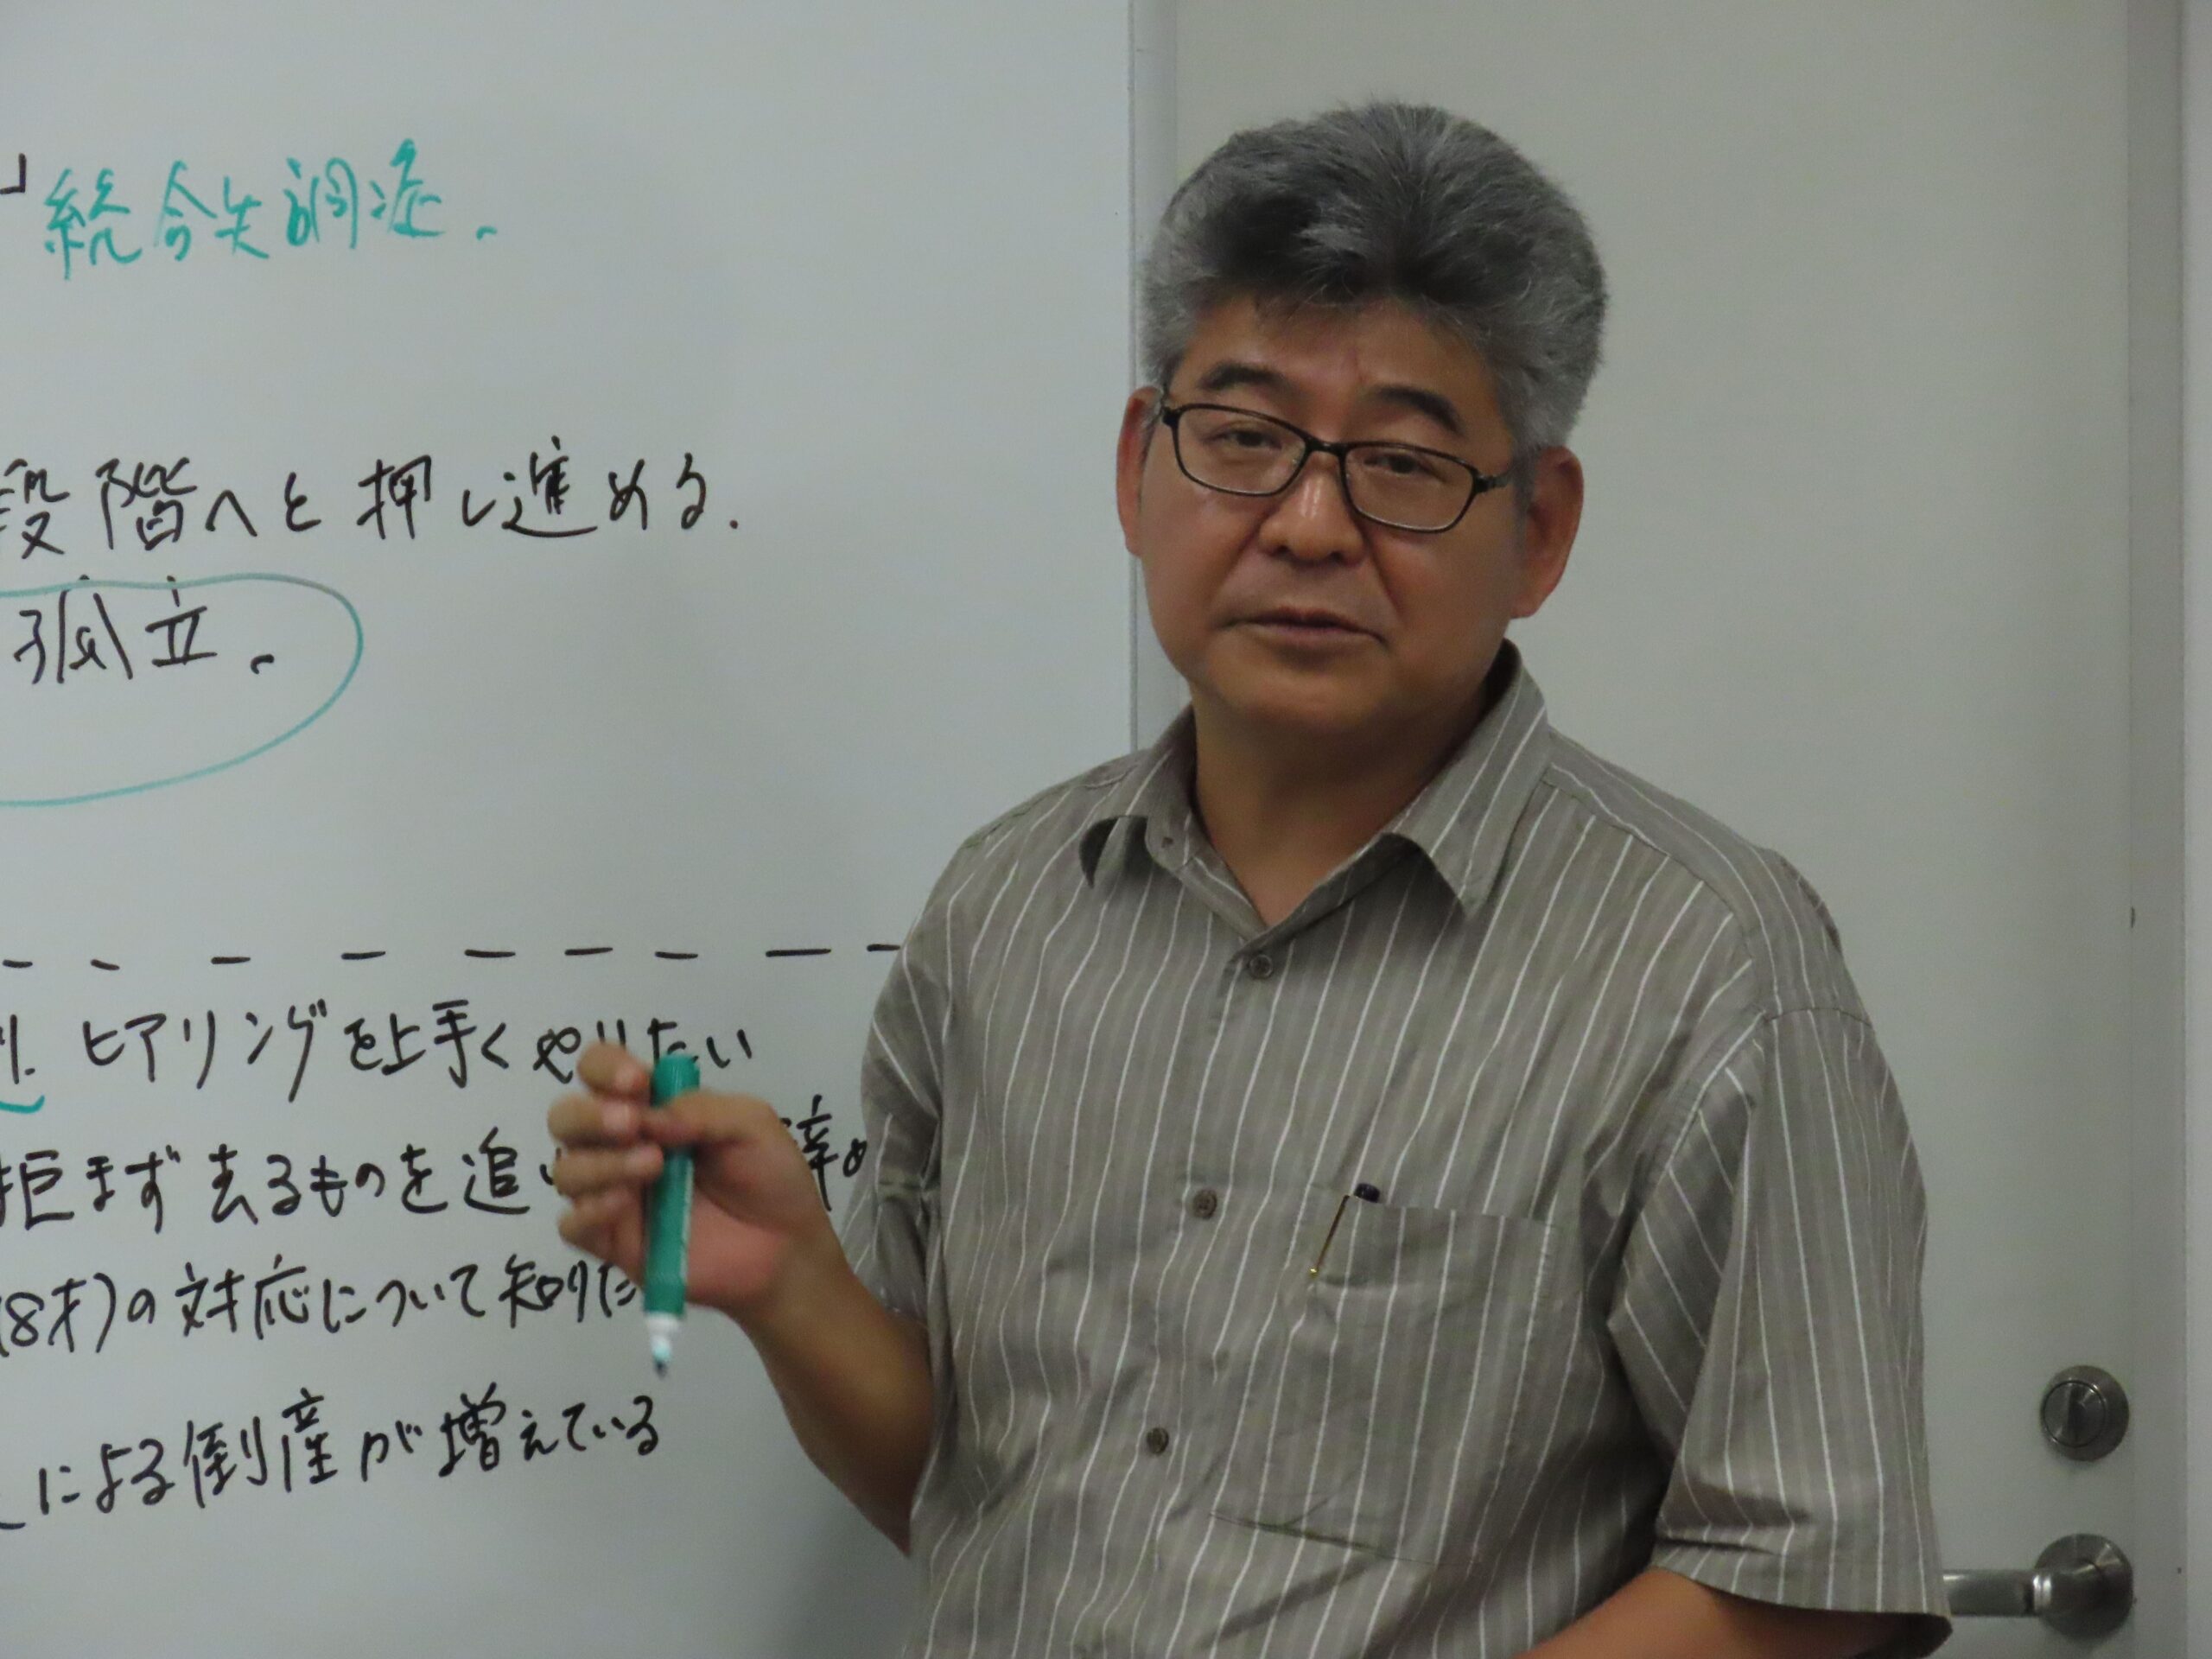 」統合失調症。
段階へと押し進める.
孤立。
ヒアリングを上手くやりたい
拒まず去るものを追い 辞め
18才)の対応について知りた
による倒産が増えている